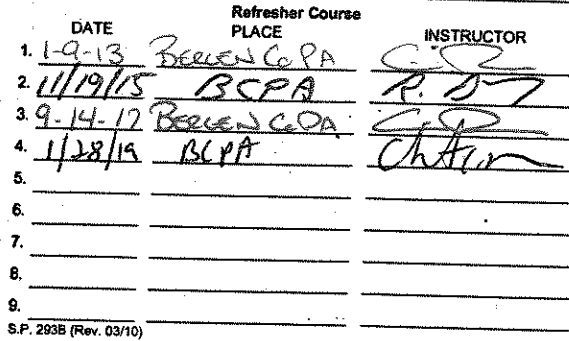 Refresher Course
DATE PLACE INSTRUCTOR
1. 1-9-13 BERGEN Co PA
2. 11/19/15 BCPA R.
3. 9-14-17 BERGEN Co PA
4. 1/28/19 BCPA
5.
6.
7.
8.
9.
S.P. 293B (Rev. 03/10)